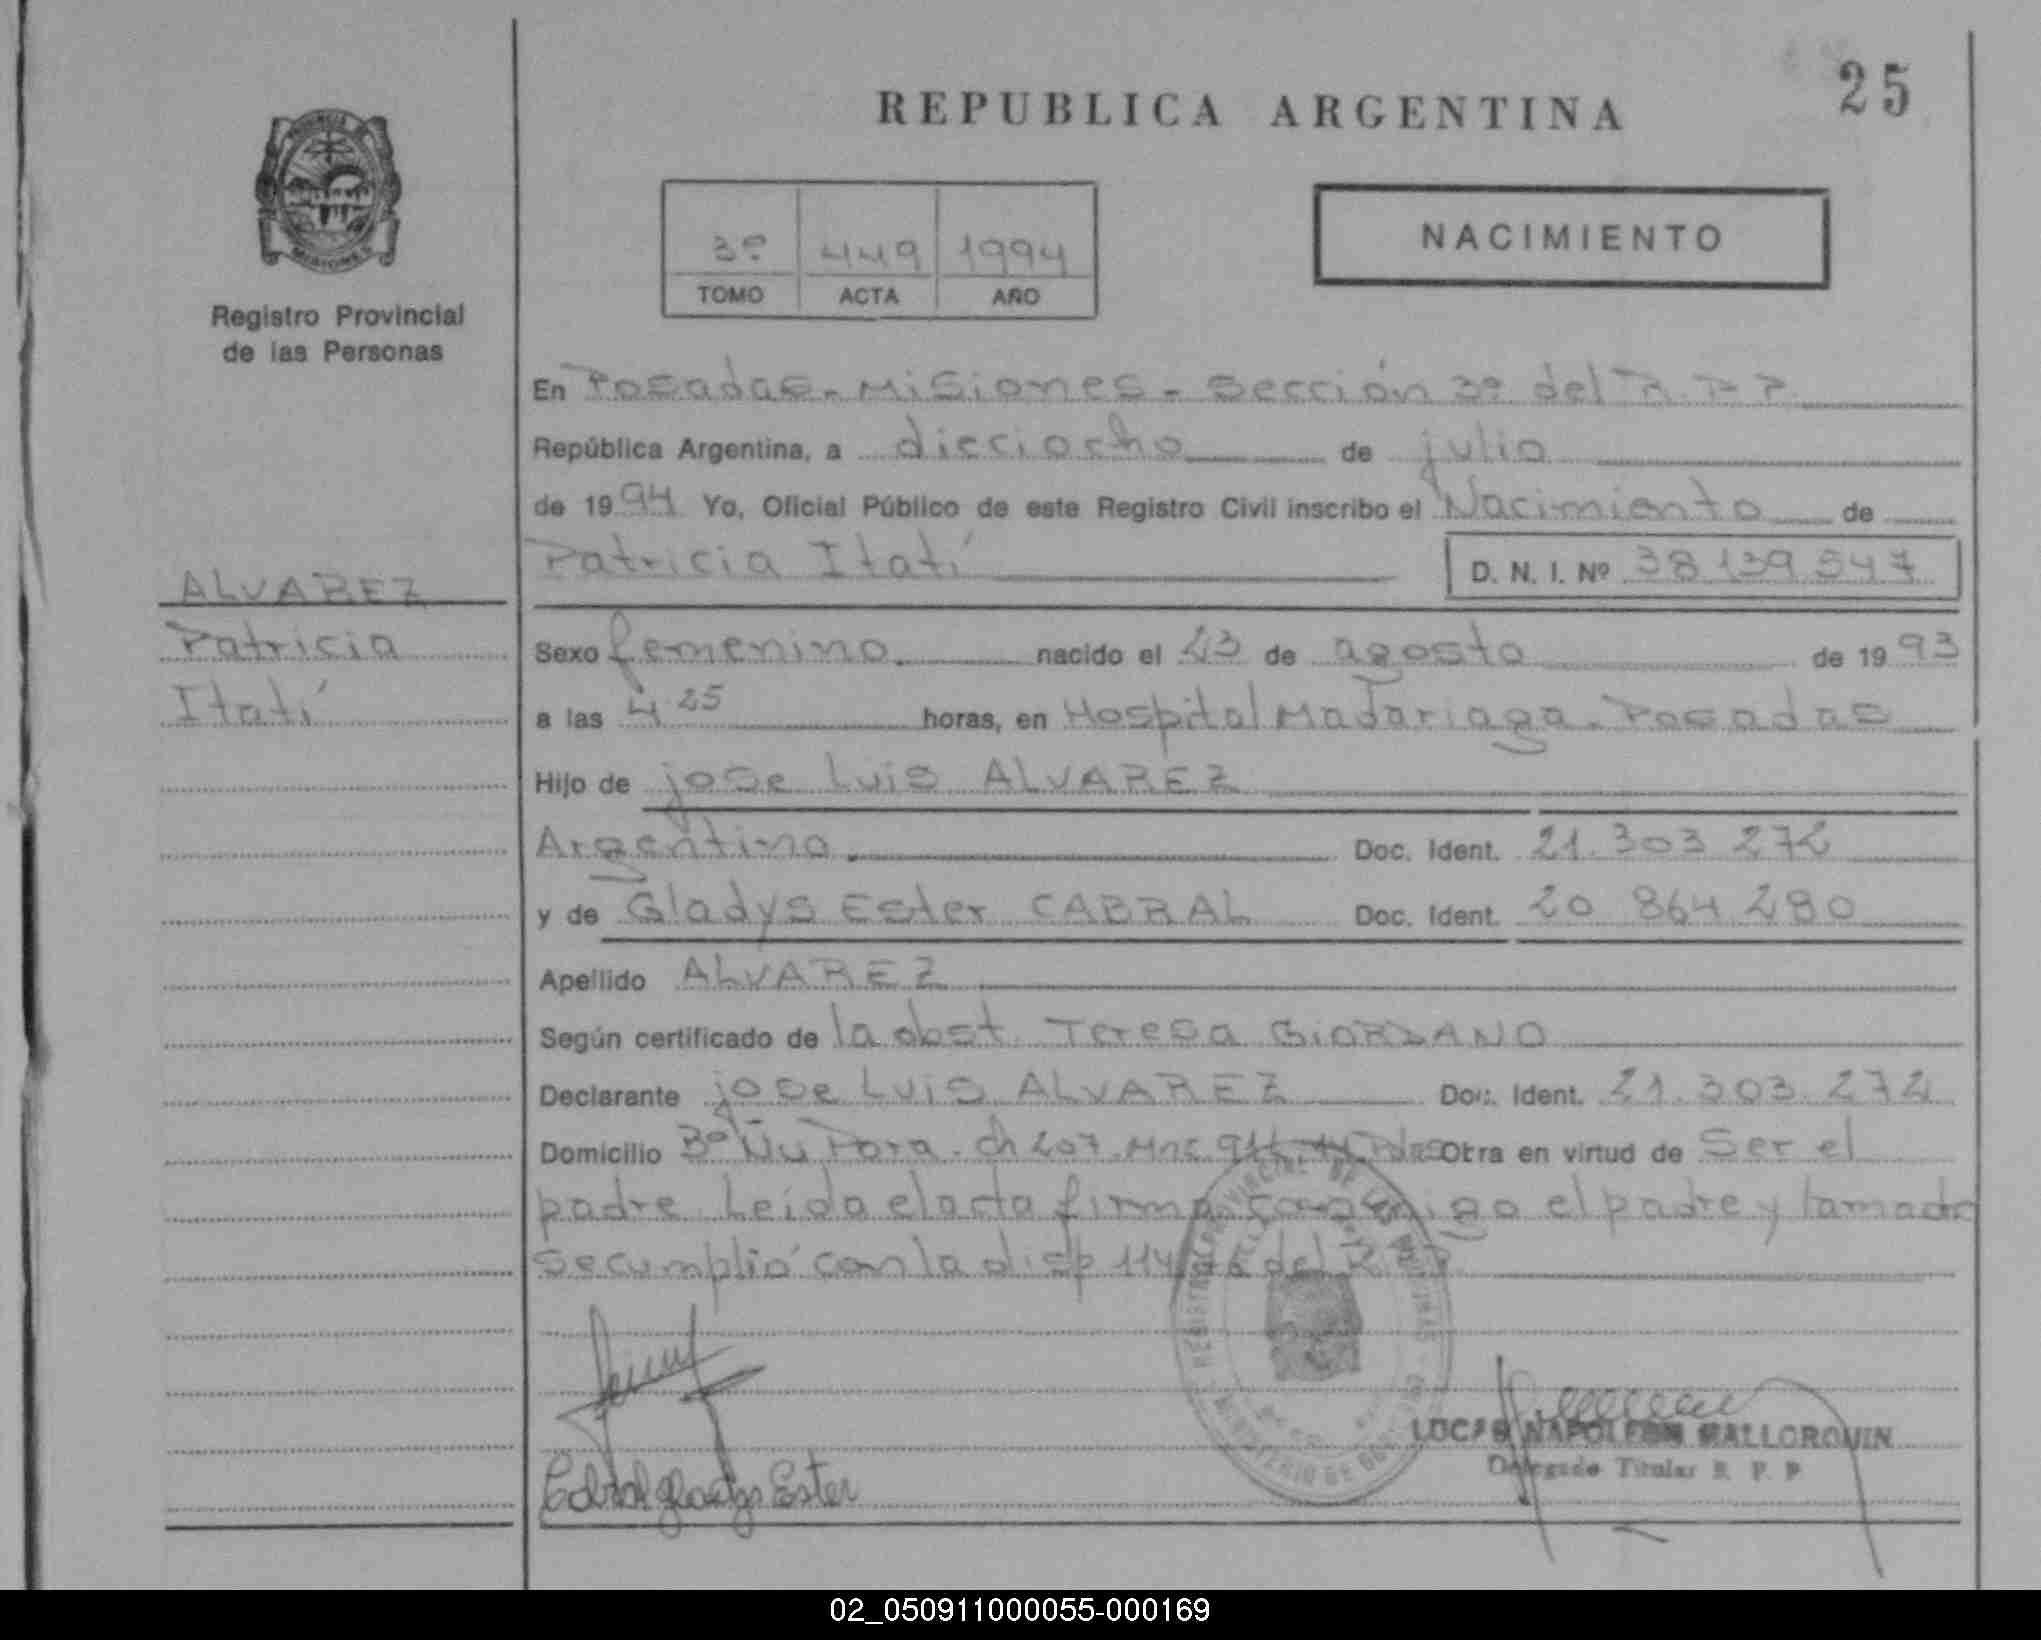 25
REPUBLICA ARGENTINA
PROVINCIA DE
MISIONES
Registro Provincial
de las Personas
3º 449 1994
TOMO ACTA AÑO
NACIMIENTO
En Posadas - Misiones - Sección 3º del R.P.P.
República Argentina, a dieciocho de julio
de 1994 Yo, Oficial Público de este Registro Civil inscribo el Nacimiento de
Patricia Itatí D. N. I. Nº 38 139 547
ALVAREZ
Patricia
Itatí
Sexo femenino. nacido el 23 de agosto de 1993
a las 4 25 horas, en Hospital Madariaga - Posadas
Hijo de jose Luis ALVAREZ
Argentino. Doc. Ident. 21.303 272
y de Gladys Ester CABRAL Doc. Ident. 20 864 280
Apellido ALVAREZ
Según certificado de la obst. Teresa GIORDANO
Declarante jose Luis ALVAREZ Doc. Ident. 21.303.272
Domicilio Bº Ñu Pora - Ch 207. Mns. Pdas Otra en virtud de Ser el
padre. Leída el acta firma conmigo el padre y la madre
se cumplió con la disp 114 del R.P.P.
REGISTRO PROVINCIAL DE LAS PERSONAS
MINISTERIO DE GOBIERNO
LUCAS NAPOLEON MALLORQUIN
Delegado Titular R. P. P
Cabral gladys Ester
02_050911000055-000169